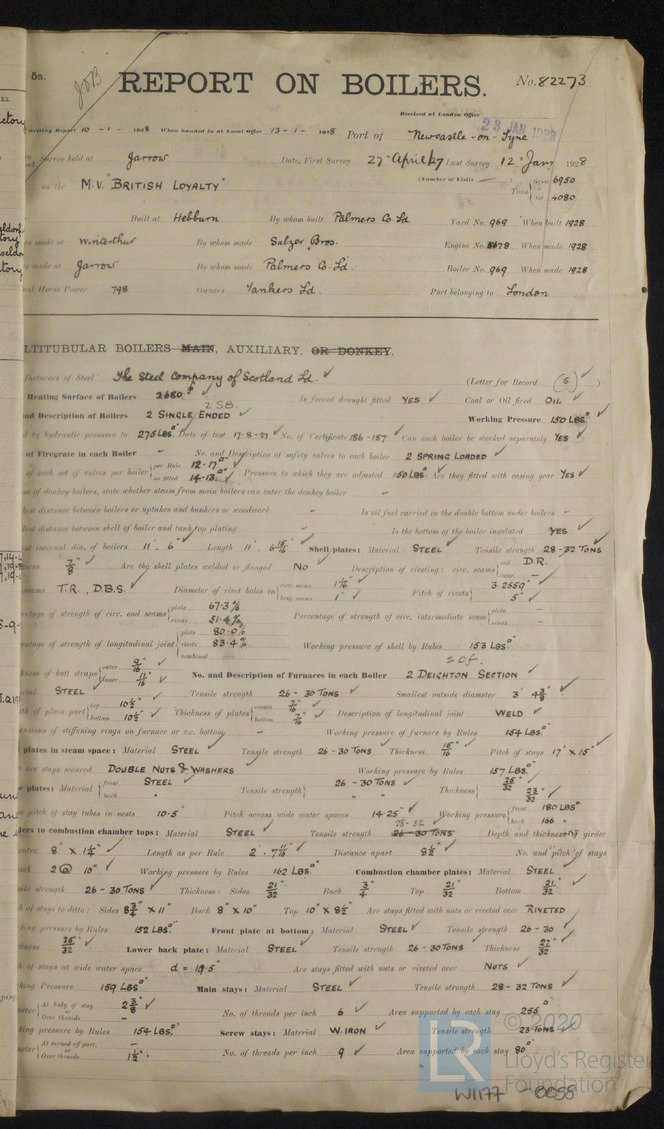 5a.
JSB
REPORT ON BOILERS. No. 82273
Received at London Office 23 JAN 1928
writing Report 10 - 1 - 1928 When handed in at Local Office 13 - 1 - 1928 Port of Newcastle-on-Tyne
Survey held at Jarrow Date, First Survey 27 April 27 Last Survey 12 Jany 1928
on the M.V. "BRITISH LOYALTY" (Number of Visits —) Tons Gross 6950 Net 4080
Built at Hebburn By whom built Palmers Co Ld Yard No. 969 When built 1928
s made at Winterthur By whom made Sulzer Bros. Engine No. When made 1928
s made at Jarrow By whom made Palmers Co. Ld. Boiler No. 969 When made 1928
Horse Power 798 Owners Tankers Ld. Port belonging to London
LTITUBULAR BOILERS MAIN, AUXILIARY, OR DONKEY.
facturers of Steel The Steel Company of Scotland Ld. (Letter for Record (S))
Heating Surface of Boilers 2680 Is forced draught fitted YES Coal or Oil fired OIL
2 S.B.
and Description of Boilers 2 SINGLE ENDED Working Pressure 150 LBS.
d by hydraulic pressure to 275 LBS. Date of test 17-8-27 No. of Certificate 186-187 Can each boiler be worked separately YES
of Firegrate in each Boiler - No. and Description of safety valves to each boiler 2 SPRING LOADED
of each set of valves per boiler per Rule 12.17 as fitted 14.13 Pressure to which they are adjusted 150 LBS. Are they fitted with easing gear YES
of donkey boilers, state whether steam from main boilers can enter the donkey boiler -
lest distance between boilers or uptakes and bunkers or woodwork - Is oil fuel carried in the double bottom under boilers -
lest distance between shell of boiler and tank top plating - Is the bottom of the boiler insulated YES
internal dia. of boilers 11' 6" Length 11' 6 15/16" Shell plates: Material STEEL Tensile strength 28-32 TONS
ness 7/8" Are the shell plates welded or flanged No Description of riveting: circ. seams end D.R. inter. -
seams T.R., D.B.S. Diameter of rivet holes in circ. seams 1 1/16 long. seams 1" Pitch of rivets 3.2559" 5"
entage of strength of circ. end seams plate 67.3% rivets 51.4% Percentage of strength of circ. intermediate seam plate - rivets -
entage of strength of longitudinal joint plate 80.0% rivets 83.4% combined — Working pressure of shell by Rules 153 LBS.
2 of.
kness of butt straps outer 9/16 inner 11/16 No. and Description of Furnaces in each Boiler 2 DEIGHTON SECTION
ial STEEL Tensile strength 26-30 TONS Smallest outside diameter 3' 4 3/8"
th of plain part top 10 1/2" bottom 10 1/2" Thickness of plates crown 7/16" bottom 7/16" Description of longitudinal joint WELD
ensions of stiffening rings on furnace or c.c. bottom - Working pressure of furnace by Rules 154 LBS.
plates in steam space: Material STEEL Tensile strength 26-30 TONS Thickness 15/16" Pitch of stays 17" X 15"
are stays secured DOUBLE NUTS & WASHERS Working pressure by Rules 157 LBS.
e plates: Material front STEEL back " Tensile strength 26-30 TONS " " Thickness 25/32 23/32
pitch of stay tubes in nests 10.5 Pitch across wide water spaces 14.25" Working pressure front 180 LBS back 166 "
28-32
ders to combustion chamber tops: Material STEEL Tensile strength 26-30 TONS Depth and thickness of girder
entre 8" X 1 1/4" Length as per Rule 2' 7 11/16" Distance apart 8 1/2" No. and pitch of stays
ach 2 @ 10" Working pressure by Rules 162 LBS. Combustion chamber plates: Material STEEL
sile strength 26-30 TONS Thickness: Sides 21/32 Back 3/4" Top 21/32 Bottom 21/32
h of stays to ditto: Sides 8 3/4" X 11" Back 8" X 10" Top 10" X 8 1/2" Are stays fitted with nuts or riveted over RIVETED
king pressure by Rules 152 LBS. Front plate at bottom: Material STEEL Tensile strength 26-30
kness 25/32 Lower back plate: Material STEEL Tensile strength 26-30 TONS Thickness 27/32
h of stays at wide water space Are stays fitted with nuts or riveted over NUTS
king Pressure 159 LBS Main stays: Material STEEL Tensile strength 28-32 TONS
meter At body of stay, or Over threads. 2 3/8" - No. of threads per inch 6 Area supported by each stay 255
king pressure by Rules 154 LBS. Screw stays: Material W.IRON Tensile strength 23 TONS
meter At turned off part, or Over threads. - 1 1/2" No. of threads per inch 9 Area supported by each stay 80
LR © 2020 Lloyd's Register Foundation
W1177 - 0055